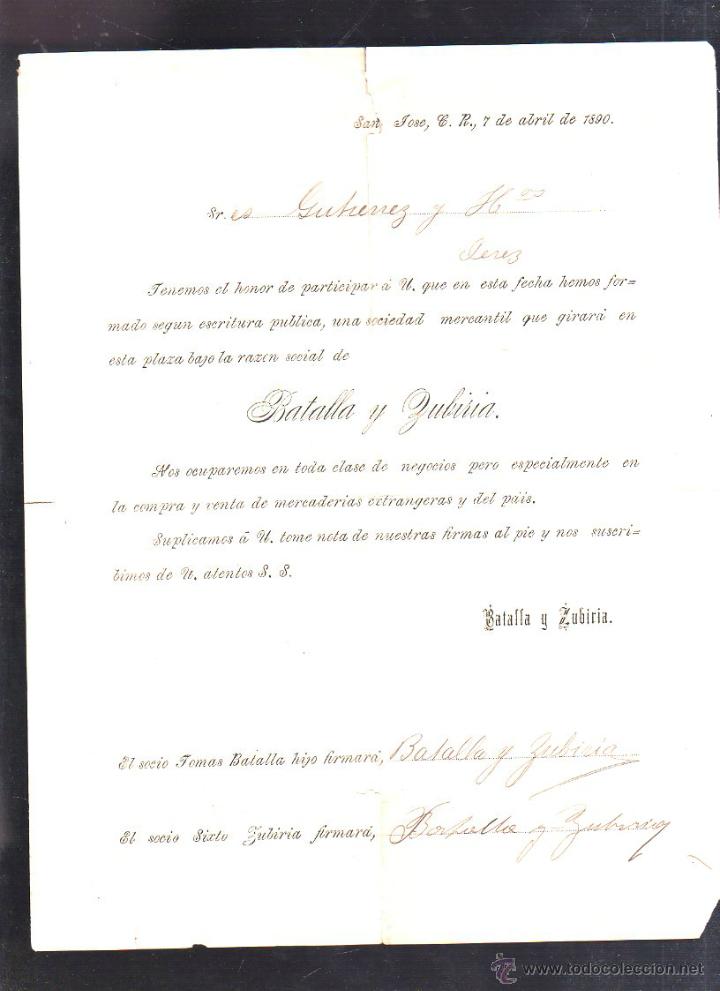 San Jose, C. R., 7 de abril de 1890.
Sr. es Gutierrez y Hnos
Jerez
Tenemos el honor de participar á U. que en esta fecha hemos for=
mado segun escritura publica, una sociedad mercantil que girará en
esta plaza bajo la razon social de
Batalla y Zubiria.
Nos ocuparemos en toda clase de negocios pero especialmente en
la compra y venta de mercaderias extrangeras y del páis.
Suplicamos á U. tome nota de nuestras firmas al pie y nos suscri-
bimos de U. atentos S. S.
Batalla y Zubiria.
El socio Tomas Batalla hijo firmará, Batalla y Zubiria
El socio Sixto Zubiria firmará, Batalla y Zubiria
www.todocoleccion.net